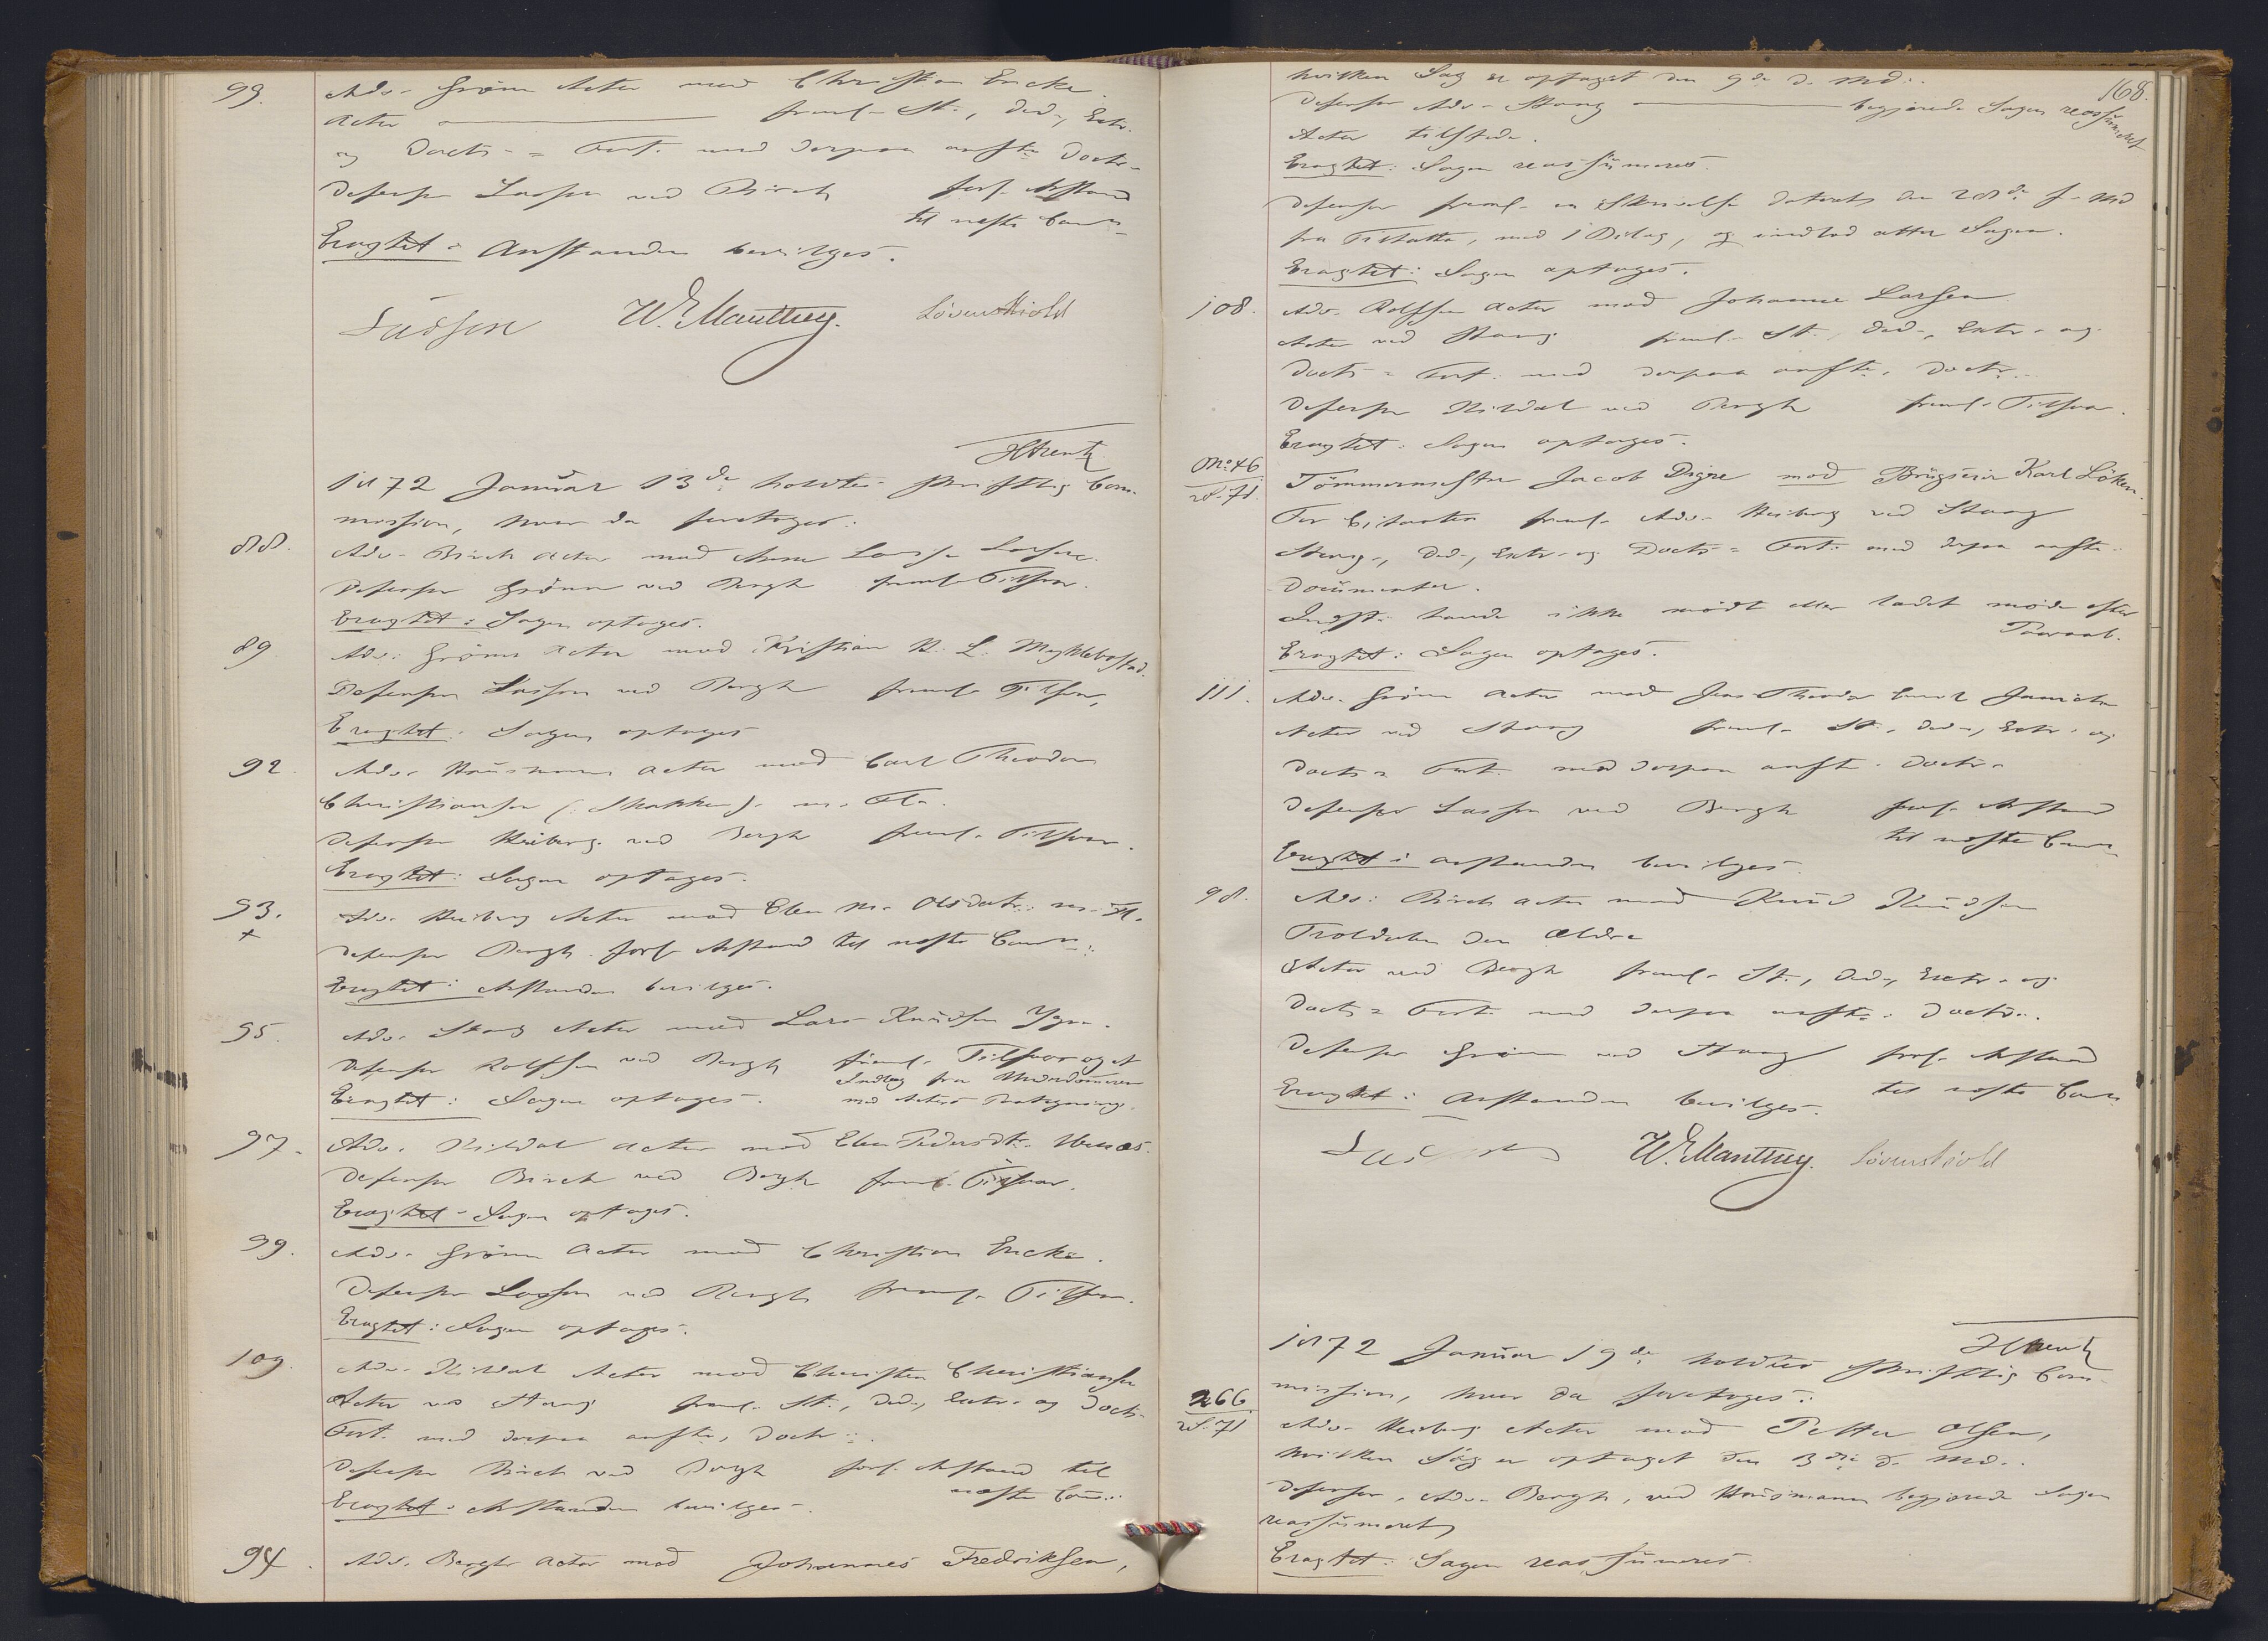 99. Adv. Grönn Actor mod Christian Encke.
Actor freml. St., Ded., Extr.
og Docts = Fort. med derpaa anfte Doctr.
Defensor Lasson ved Birch forl. Anstand
til næste Comm
Eragtet: Anstanden bevilges.
Lasson W. Manthey. Lövenskiold
HArentz
1872 Januar 13de holdtes skriftlig Com-
mission, hvor da foretoges:
88. Adv. Birch Actor mod Anne Lovise Larsen.
Defensor Grönn ved Bergh freml. Tilsvar.
Eragtet: Sagen optages.
89 Adv. Grönn Actor mod Kristian K. L. Myklebostad.
Defensor Lasson ved Bergh freml. Tilsvar,
Eragtet: Sagen optages
92. Adv. Housmann Actor mod Carl Theodor
Christiansen (Skakken) m. Fl.
Defensor Heiberg ved Bergh freml. Tilsvar.
Eragtet: Sagen optages.
93. Adv. Heiberg Actor mod Elen M. Olsdatr. m. Fl.
+
Defensor Bergh forl. Anstand til næste Comm:
Eragtet: Anstanden bevilges.
95. Adv. Stang Actor mod Lars Knudsen
Defensor Rolfsen ved Bergh freml. Tilsvar og et
Indlæg fra Underdommeren
Eragtet: Sagen optages. med Actors Paategning.
97. Adv. Kildal Actor mod Elen Pedersdtr.
Defensor Birch ved Bergh freml. Tilsvar.
Eragtet: Sagen optages.
99. Adv. Grönn Actor mod Christian Encke.
Defensor Lasson ved Bergh freml. Tilsvar.
Eragtet: Sagen optages.
109. Adv. Kildal Actor mod Christen Christiansen
Actor ved Stang freml. St., Ded., Extr. og Docts
Fort. med derpaa anfte, Doctr.
Defensor Birch ved Bergh forl. Anstand til
næste Com:
Eragtet: Anstanden bevilges.
94. Adv. Bergh Actor mod Johannes Fredriksen,
168.
hvilken Sag er optaget den 9de d. Md.
Defensor Adv. Stang begjærede Sagen reassumeret
Actor tilstede.
Eragtet: Sagen reassumeres.
Defensor freml. en Skrivelse dateret den 28de f. Md
fra Tiltalte, med 1 Bilag, og indlod atter Sagen.
Eragtet: Sagen optages.
108. Adv. Rolfsen Actor mod Johanne Larsen
Actor ved Stang freml. St., Ded., Extr. og
Docts = Fort. med derpaa anfte. Doctr.
Defensor Kildal ved Bergh freml. Tilsvar.
Eragtet: Sagen optages.
No. 46
71. Tömmermester Jacob Digre mod Brugseier Karl Löken.
For Citanten freml. Adv. Heiberg ved Stang
Stevn., Ded., Extr. og Docts = Fort. med derpaa anfte.
Documenter.
Indst. havde ikke mödt eller ladet möde efter
Paaraab.
Eragtet: Sagen optages.
111. Adv. Grönn Actor mod Jens Theodor
Actor ved Stang freml. St., Ded., Extr. og
Docts = Fort. med derpaa anfte. Doctr.
Defensor Lasson ved Bergh forl. Anstand
til næste Comm
Eragtet: Anstanden bevilges.
98. Adv. Birch Actor mod Knud Knudsen
den Ældre
Actor ved Bergh freml. St., Ded., Extr. og
Docts = Fort. med derpaa anfte. Doctr.
Defensor Grönn ved Stang forl. Anstand
til næste Comm
Eragtet: Anstanden bevilges.
Lasson W. Manthey. Lövenskiold
HArentz
1872 Januar 19de holdtes skriftlig Com-
mission, hvor da foretoges:
266
71 Adv. Heiberg Actor mod Petter Olsen,
hvilken Sag er optaget den 3die d. Md.
Defensor, Adv. Bergh, ved Housmann begjærede Sagen
reassumeret
Eragtet: Sagen reassumeres